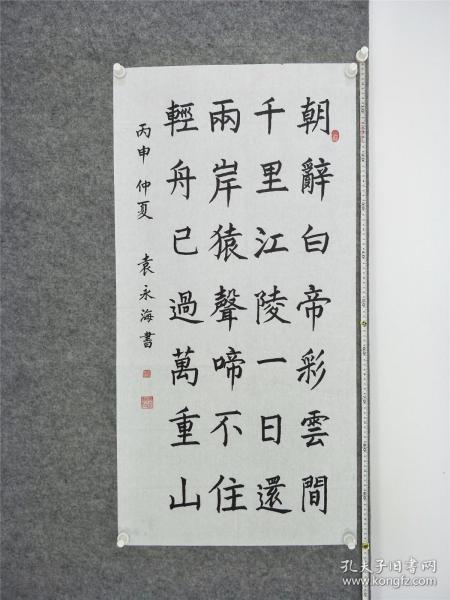 朝辭白帝彩雲間
千里江陵一日還
兩岸猿聲啼不住
輕舟已過萬重山
丙申仲夏 袁永海書
孔夫子旧书网
www.kongfz.com